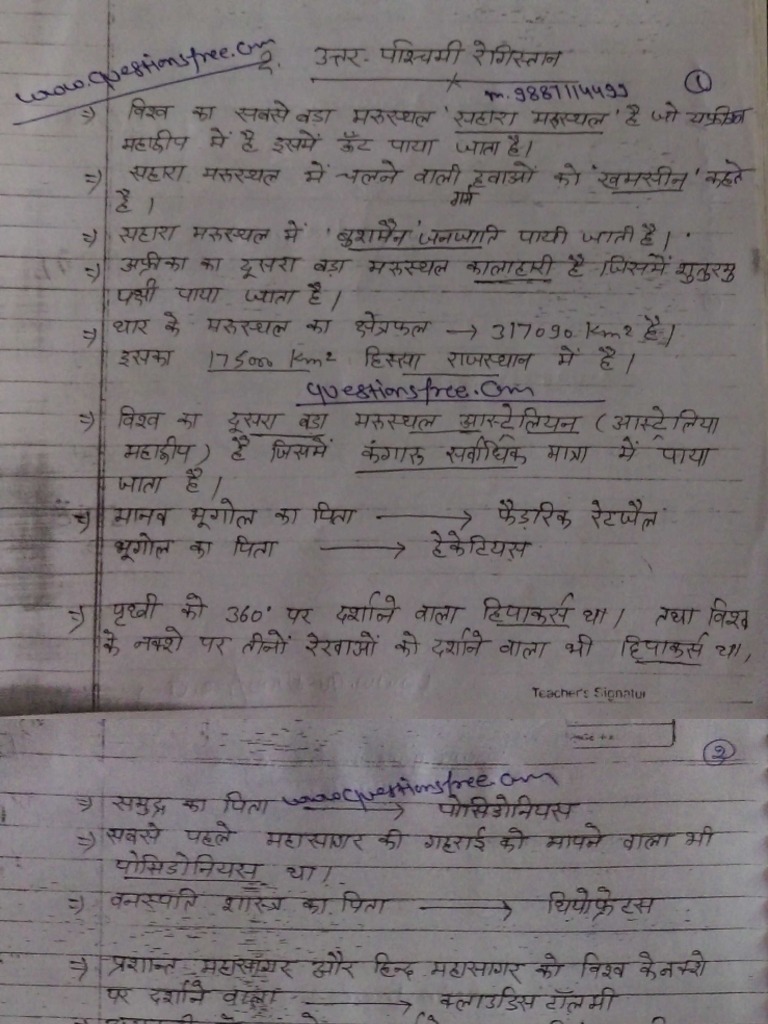 www.questionsfree.com
2. उत्तर-पश्चिमी रेगिस्तान
m.9887114499
①
=) विश्व का सबसे बडा मरूस्थल 'सहारा मरूस्थल' है जो
महाद्वीप में है इसमें ऊँट पाया जाता है।
=) सहारा मरूस्थल में चलने वाली गर्म हवाओं को 'खमसीन' कहते
है।
=) सहारा मरूस्थल में 'बुशमैन' जनजाति पायी जाती है।
=) अफ्रीका का दूसरा बडा मरूस्थल कालाहारी है जिसमें शुतुरमु
पक्षी पाया जाता है।
=) थार के मरूस्थल का क्षेत्रफल → 317090 km² है।
इसका 175000 km² हिस्सा राजस्थान में है।
questionsfree.com
=) विश्व का दूसरा बडा मरूस्थल आस्ट्रेलियन (आस्ट्रेलिया
महाद्वीप) है जिसमें कंगारू सर्वाधिक मात्रा में पाया
जाता है।
=) मानव भूगोल का पिता → फैड़रिक रेटजैल
भूगोल का पिता → हेकेटियस
=) पृथ्वी को 360° पर दर्शाने वाला हिपाकर्स था। तथा विश्व
के नक्शे पर तीनों रेखाओं को दर्शाने वाला भी हिपाकर्स था,
Teacher's Signatur
②
=) समुद्र का पिता www.questionsfree.com → पोसिडोनियस
=) सबसे पहले महासागर की गहराई को मापने वाला भी
पोसिडोनियस था।
=) वनस्पति शास्त्र का पिता → थियोफ्रेटस
=) प्रशान्त महासागर और हिन्द महासागर को विश्व के नक्शे
पर दर्शाने वाला → क्लाउडिस टॉलमी